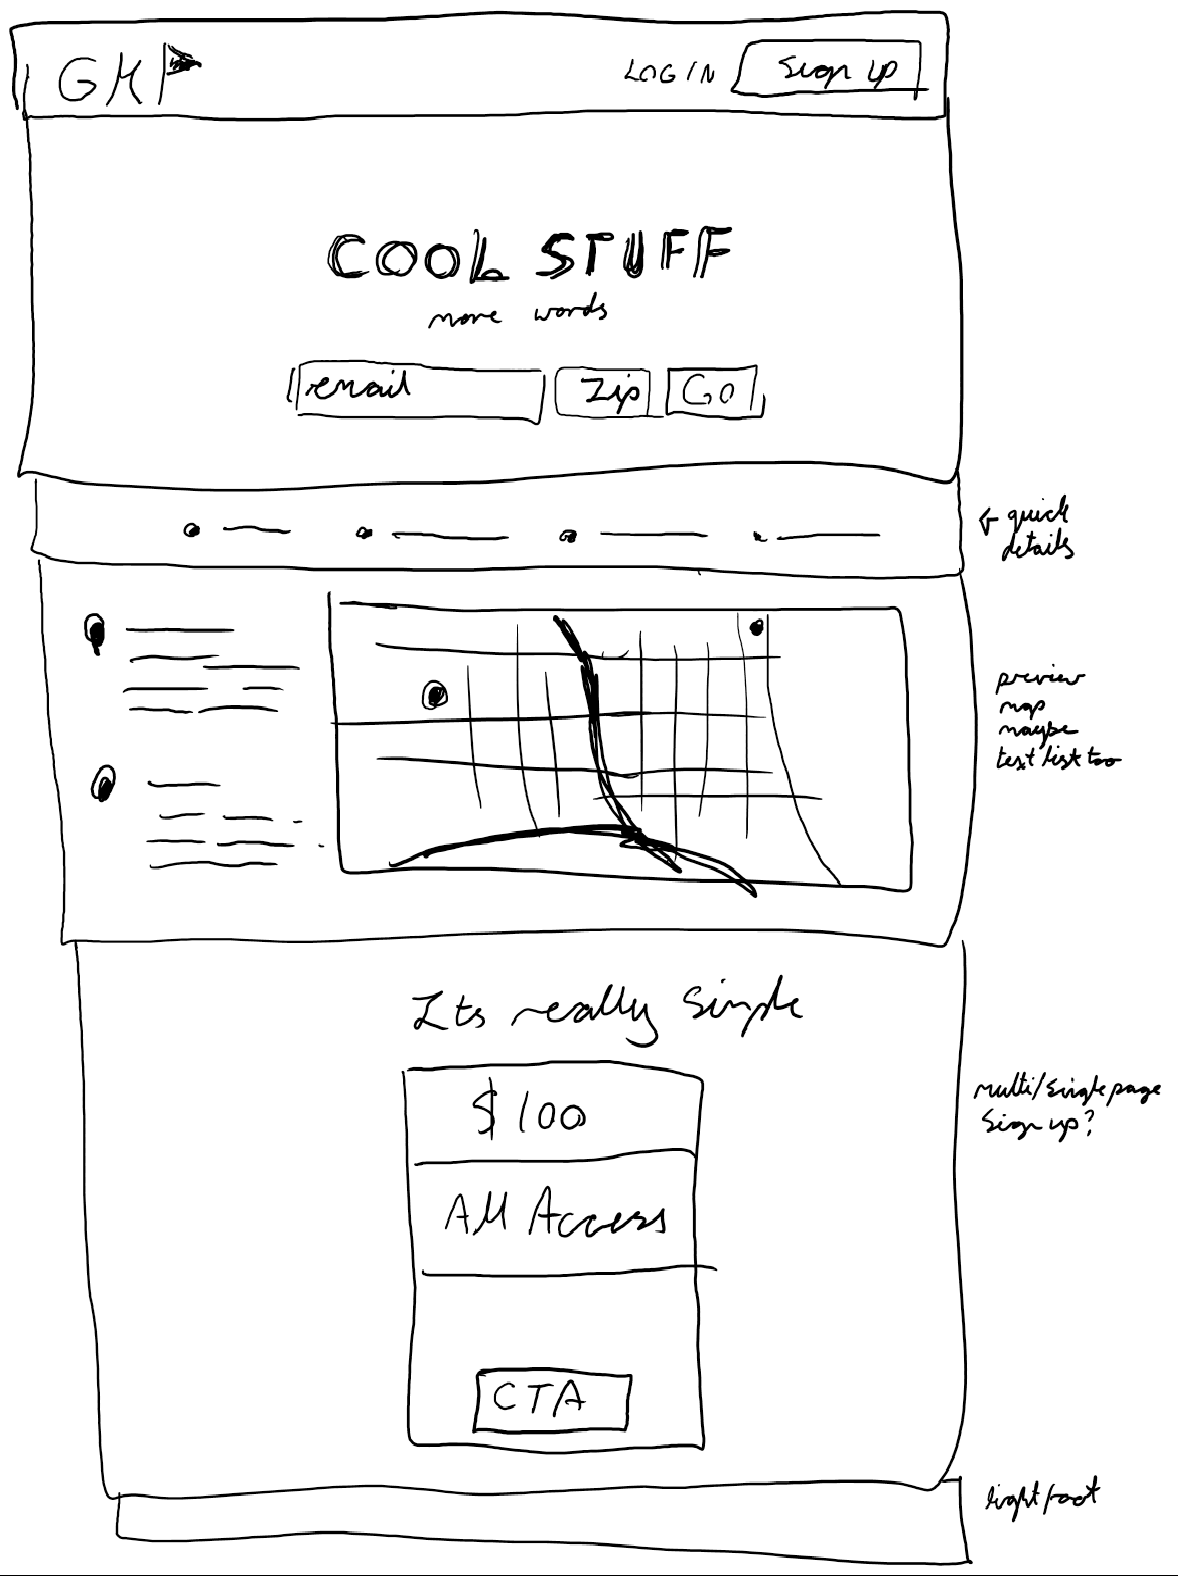 GM
LOGIN
Sign up
COOL STUFF
more words
email
Zip
Go
← quick
details
preview
map
maybe
text list too
Its really simple
$100
All Access
CTA
multi/single page
Sign up?
light foot